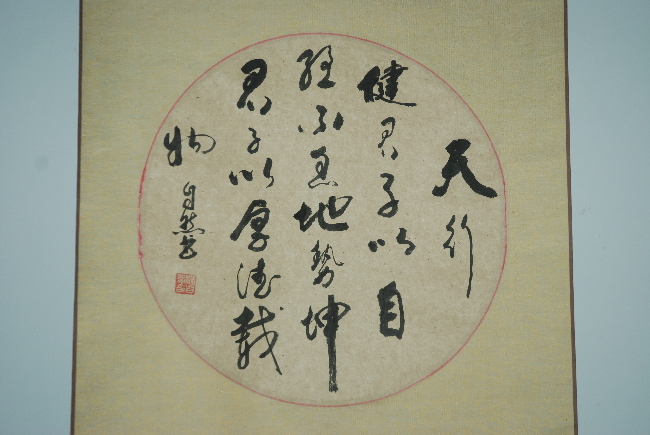 天行
健君子以自
强不息地势坤
君子以厚德载
物
自然书